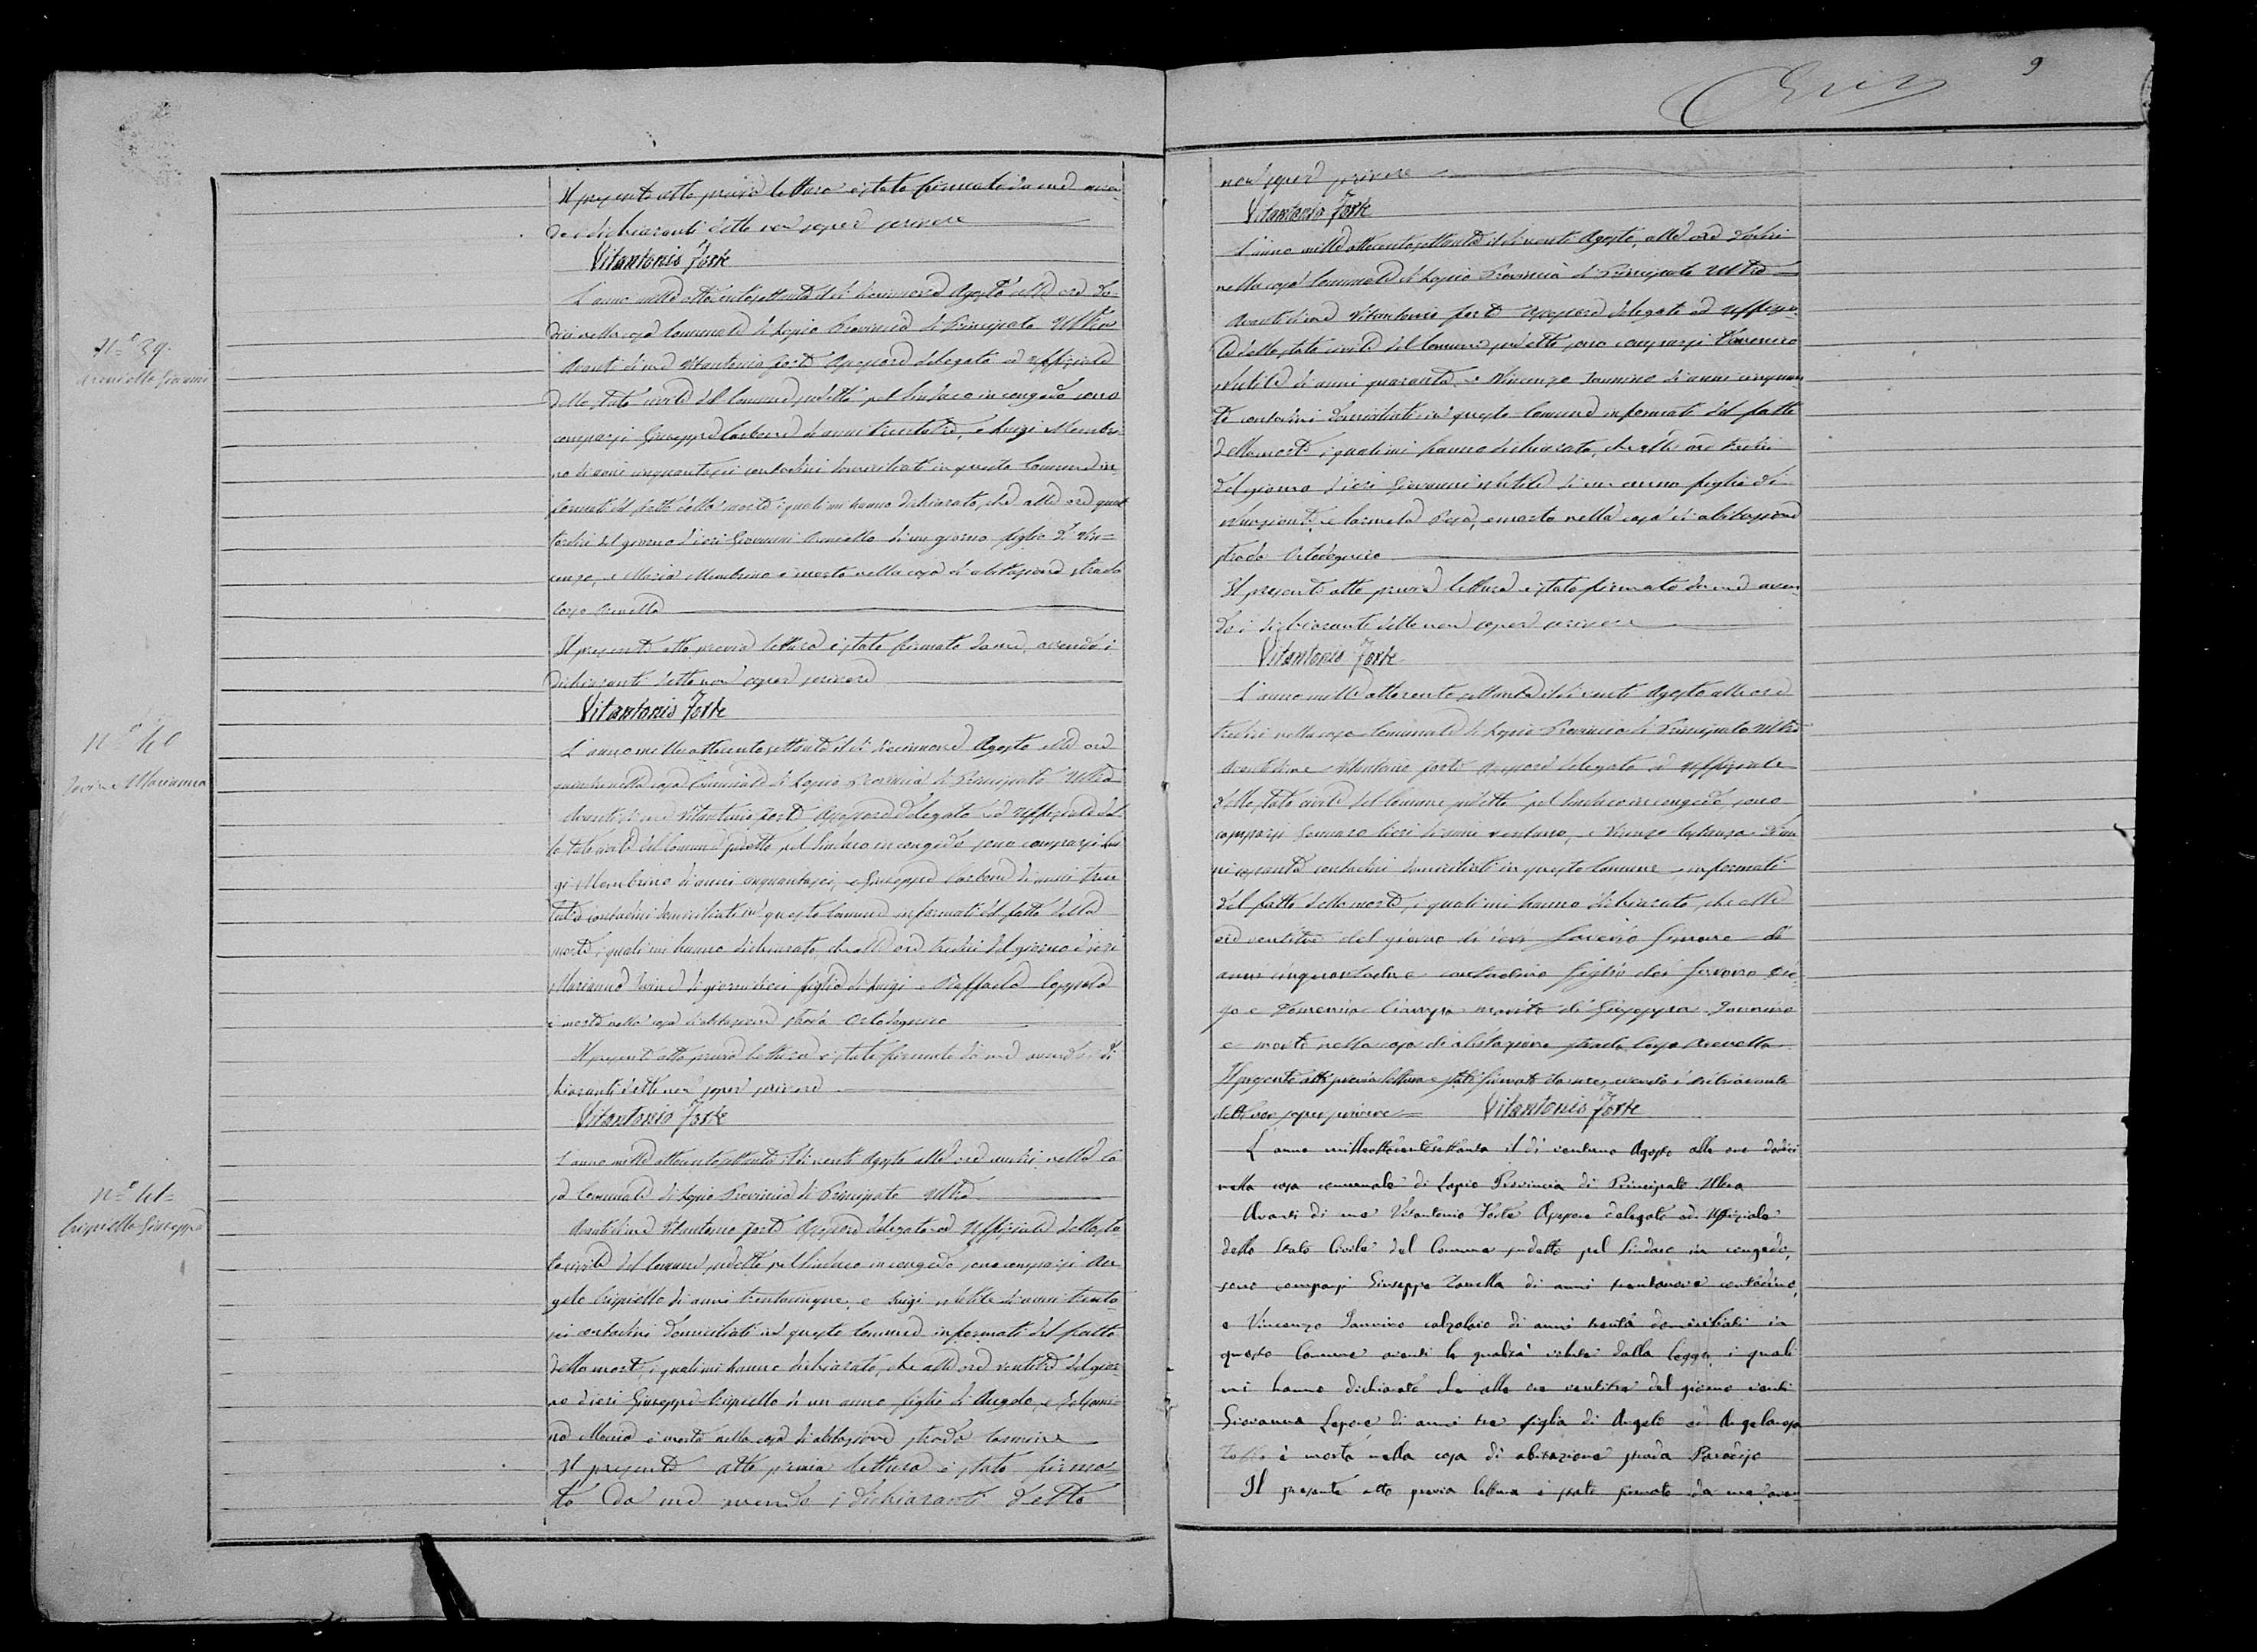 Il presente atto previa lettura è stato firmato da me aven
do i dichiaranti detto non saper scrivere
Vitantonio Forte
N.° 39.
Giovanni
L'anno mille ottocentosettanta il dì diciannove Agosto alle ore do
dici nella casa Comunale di Lapio Provincia di Principato Ultra
Avanti di me Vitantonio Forte Assessore delegato ad Uffiziale
dello stato civile del Comune sudetto pel Sindaco in congedo sono
comparsi Giuseppe Carbone di anni trentatre, e Luigi Membri
no di anni cinquantasei contadini domiciliati in questo Comune in
formati del fatto della morte i quali mi hanno dichiarato, che alle ore quat
tordici del giorno d'ieri Giovanni di un giorno figlio di Vin=
cenzo, e Maria Membrino è morto nella casa di abitazione strada
Il presente atto previa lettura è stato firmato da me, avendo i
dichiaranti detto non saper scrivere
Vitantonio Forte
N.° 40
Iovine Marianna
L'anno mille ottocento settanta il dì diciannove Agosto alle ore
nella casa Comunale di Lapio Provincia di Principato Ultra
Avanti di me Vitantonio Forte Assessore delegato ad Uffiziale del
lo stato civile del Comune sudetto pel Sindaco in congedo sono comparsi Lui
gi Membrino di anni cinquantasei, e Giuseppe Carbone di anni tren
tatre contadini domiciliati in questo Comune informati del fatto della
morte, i quali mi hanno dichiarato, che alle ore tredici del giorno d'ieri
Marianna Iovine di giorni dieci figlia di Luigi e Raffaela Coppola
è morta nella casa di abitazione strada Ortodognico
Il presente atto previa lettura è stato firmato da me avendo i di
chiaranti detto non saper scrivere
Vitantonio Forte
N.° 41=
Crispiello Giuseppe
L'anno mille ottocento settanta il dì venti Agosto alle ore undici nella ca
sa Comunale di Lapio Provincia di Principato Ultra
Avanti di me Vitantonio Forte Assessore delegato ad Uffiziale dello sta
to civile del Comune sudetto pel Sindaco in congedo sono comparsi An
gelo Crispiello di anni trentacinque, e Luigi di anni trenta
sei contadini domiciliati in questo Comune informati del fatto
della morte, i quali mi hanno dichiarato, che alle ore ventitre del gior
no d'ieri Giuseppe Crispiello di un anno figlio di Angelo, e
è morto nella casa di abitazione strada
Il presente atto previa lettura è stato firma=
to da me avendo i dichiaranti detto
9
non saper scrivere
Vitantonio Forte
L'anno mille ottocentosettanta il dì venti Agosto, alle ore dodici
nella casa Comunale di Lapio Provincia di Principato Ultra
Avanti di me Vitantonio Forte Assessore delegato ad Uffizia
le dello stato civile del Comune sudetto sono comparsi Domenico
di anni quaranta, e Vincenzo Iannino di anni cinquan
ta contadini domiciliati in questo Comune informati del fatto
della morte, i quali mi hanno dichiarato, che alle ore tredici
del giorno d'ieri Giovanni di un anno figlio di
Nunziante, e Carmela, è morto nella casa di abitazione
strada Ortodognico
Il presente atto previa lettura è stato firmato da me aven
do i dichiaranti detto non saper scrivere
Vitantonio Forte
L'anno mille ottocento settanta il dì venti Agosto alle ore
tredici nella casa Comunale di Lapio Provincia di Principato Ultra
Avanti di me Vitantonio Forte Assessore delegato ad Uffiziale
dello stato civile del Comune sudetto pel Sindaco in congedo, sono
comparsi Gennaro di anni ventuno, e Vincenzo di an
ni contadini domiciliati in questo Comune informati
del fatto della morte, i quali mi hanno dichiarato, che alle
ore ventitre del giorno di ieri Saverio di
anni contadino figlio
e Domenica marito di Giuseppa Iannino
è morto nella casa di abitazione strada
Il presente atto previa lettura è stato firmato da me, avendo i dichiaranti
detto non saper scrivere = Vitantonio Forte
L'anno milleottocentosettanta il dì ventuno Agosto alle ore dodici
nella casa comunale di Lapio Provincia di Principato Ultra
Avanti di me Vitantonio Forte Assessore delegato ad Uffiziale
dello Stato Civile del Comune sudetto pel Sindaco in congedo,
sono comparsi Giuseppe di anni trentanove contadino,
e Vincenzo Iannino calzolaio di anni trenta domiciliati in
questo Comune aventi le qualità volute dalla legge, i quali
mi hanno dichiarato che alle ore ventitre del giorno venti
Giovanna Lepore di anni tre figlia di Angelo ed Angelarosa
è morta nella casa di abitazione strada Paradiso
Il presente atto previa lettura è stato firmato da me aven-